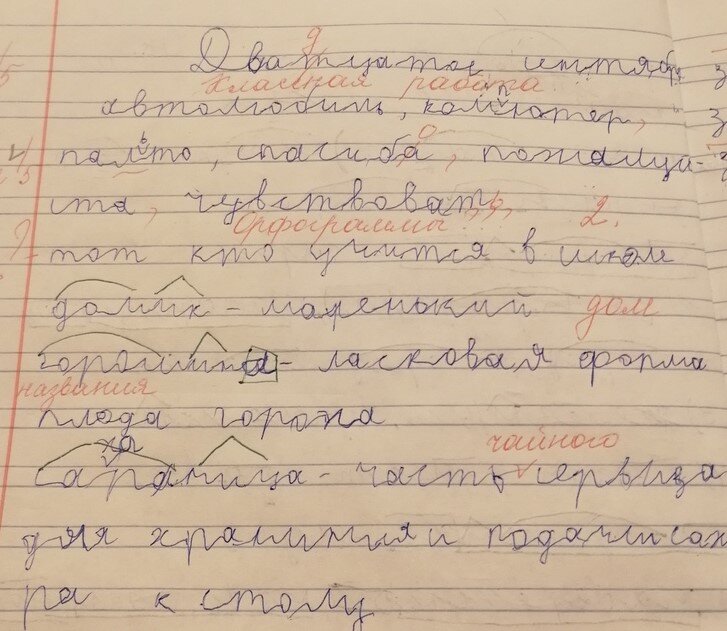 д
Дватцатое сентяб
Классная работа
автомюбиль, компютер,
ь
палто, спасиба, пожалуа-
о
ста, чувствовать,
Орфограммы 2.
тот кто учится в школ
домик - маренький дом
горошина - ласковая форма
названия
плода гороха
ха
сараница - часть сервиза
чайного
для хранимия и подачи сах
ра к столу